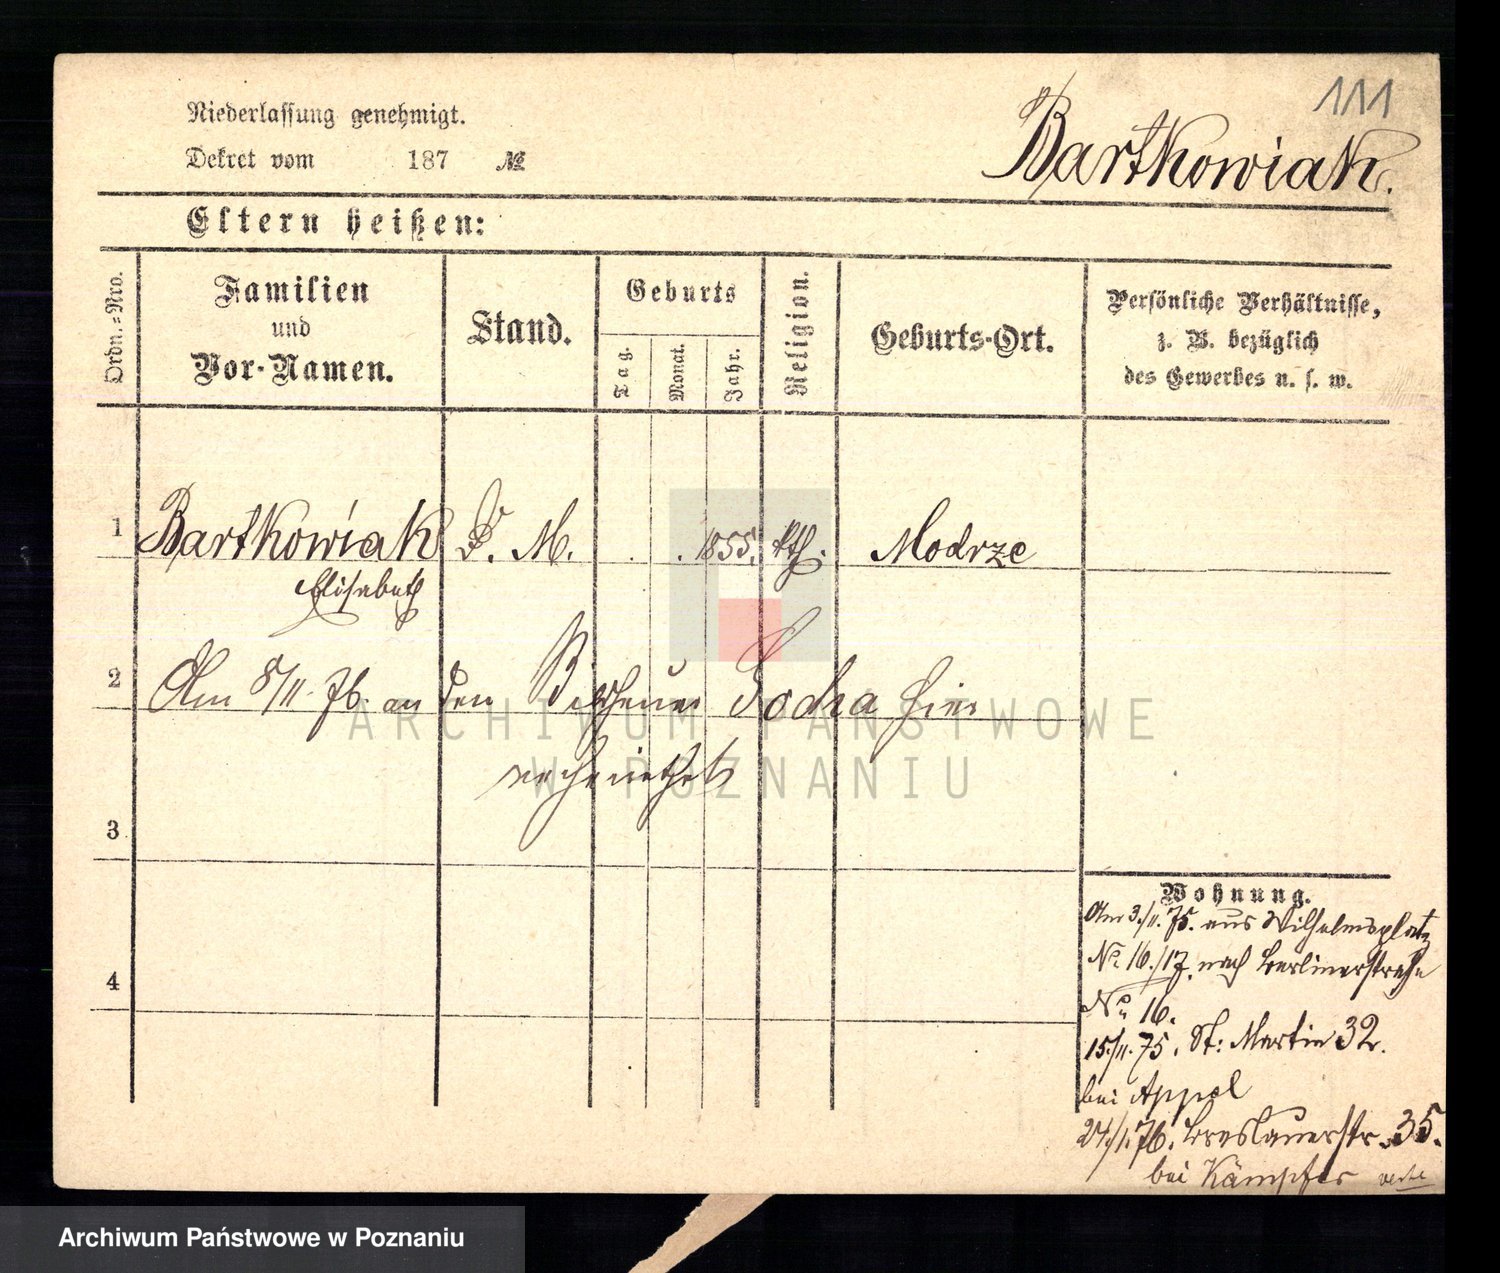 111
Niederlassung genehmigt.
Bartkowiak.
Dekret vom 187 №
Eltern heißen:
Ordn.=Nro.
Familien
und
Vor-Namen.
Stand.
Geburts
Tag.
Monat.
Jahr.
Religion.
Geburts-Ort.
Persönliche Verhältnisse,
z. B. bezüglich
des Gewerbes u. s. w.
1 Bartkowiak D. M. 1855. kth. Modrze
Elisabeth
2 Am 8/11. 76. an den Sodra hier
verheirathet
3
4
Wohnung.
Am 3./11. 75. aus Wilhelmsplatz
No. 16./17. nach Berlinerstraße
No. 16.
15./11. 75. St: Martin 32.
bei Appel
24./1. 76. Breslauerstr. 35.
bei Kämpfer
ARCHIWUM PAŃSTWOWE
W POZNANIU
Archiwum Państwowe w Poznaniu